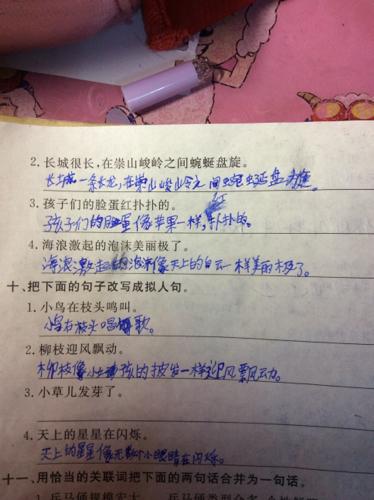 2. 长城很长,在崇山峻岭之间蜿蜒盘旋。
长城一条长龙,在崇山峻岭之间蜿蜒盘旋。
3. 孩子们的脸蛋红扑扑的。
孩子们的脸蛋像苹果一样,红扑扑的。
4. 海浪激起的泡沫美丽极了。
海浪激起的泡沫像天上的白云一样美丽极了。
十、把下面的句子改写成拟人句。
1. 小鸟在枝头鸣叫。
小鸟在枝头唱歌。
2. 柳枝迎风飘动。
柳枝像小女孩的披发一样迎风飘动。
3. 小草儿发芽了。
4. 天上的星星在闪烁。
天上的星星像无数小眼睛在闪烁。
十一、用恰当的关联词把下面的两句话合并为一句话。